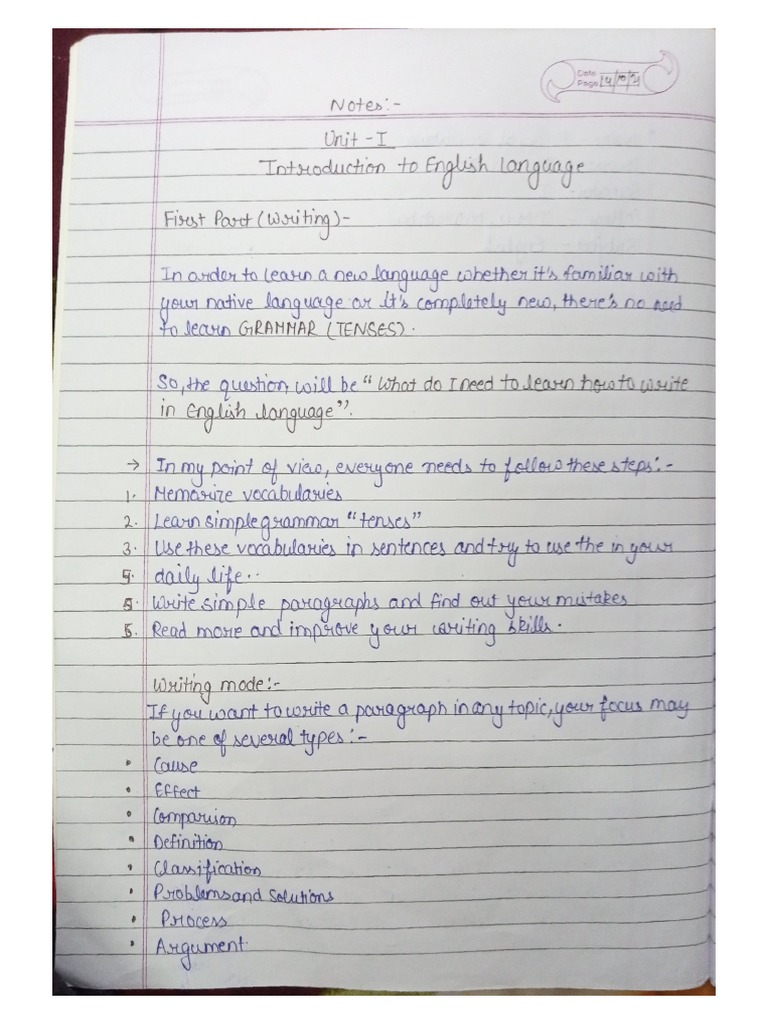 Date
Page 14/10/21
Notes:-
Unit - I
Introduction to English language
First Part (Writing)-
In order to learn a new language whether it's familiar with
your native language or it's completely new, there's no need
to learn GRAMMAR (TENSES).
So, the question will be "What do I need to learn how to write
in English language".
→ In my point of view, everyone needs to follow these steps:-
1. Memorize vocabularies
2. Learn simple grammar "tenses"
3. Use these vocabularies in sentences and try to use the in your
daily life..
Write simple paragraphs and find out your mistakes
Read more and improve your writing skills.
Writing mode:-
If you want to write a paragraph in any topic, your focus may
be one of several types:-
• Cause
• Effect
• Comparision
• Definition
• Classification
• Problems and Solutions
• Process
• Argument.